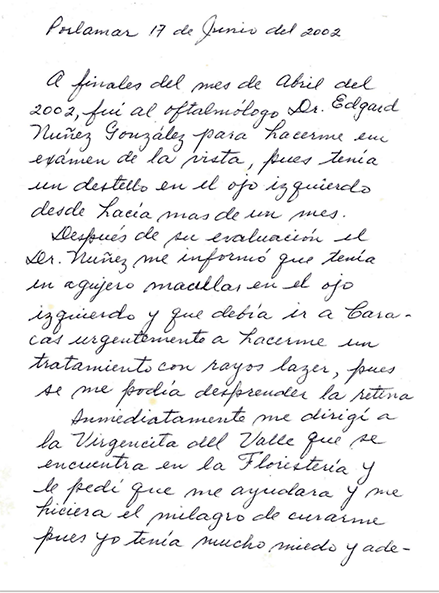 Porlamar 17 de Junio del 2002
A finales del mes de Abril del
2002, fuí al oftalmólogo Dr. Edgard
Nuñez González para hacerme un
exámen de la vista, pues tenía
un destello en el ojo izquierdo
desde hacía mas de un mes.
Después de su evaluación el
Dr. Nuñez me informó que tenía
un agujero macular en el ojo
izquierdo y que debía ir a Cara-
cas urgentemente a hacerme un
tratamiento con rayos lazer, pues
se me podía desprender la retina
Inmediatamente me dirigí a
la Virgencita del Valle que se
encuentra en la Floristería y
le pedí que me ayudara y me
hiciera el milagro de curarme
pues yo tenía mucho miedo y ade-